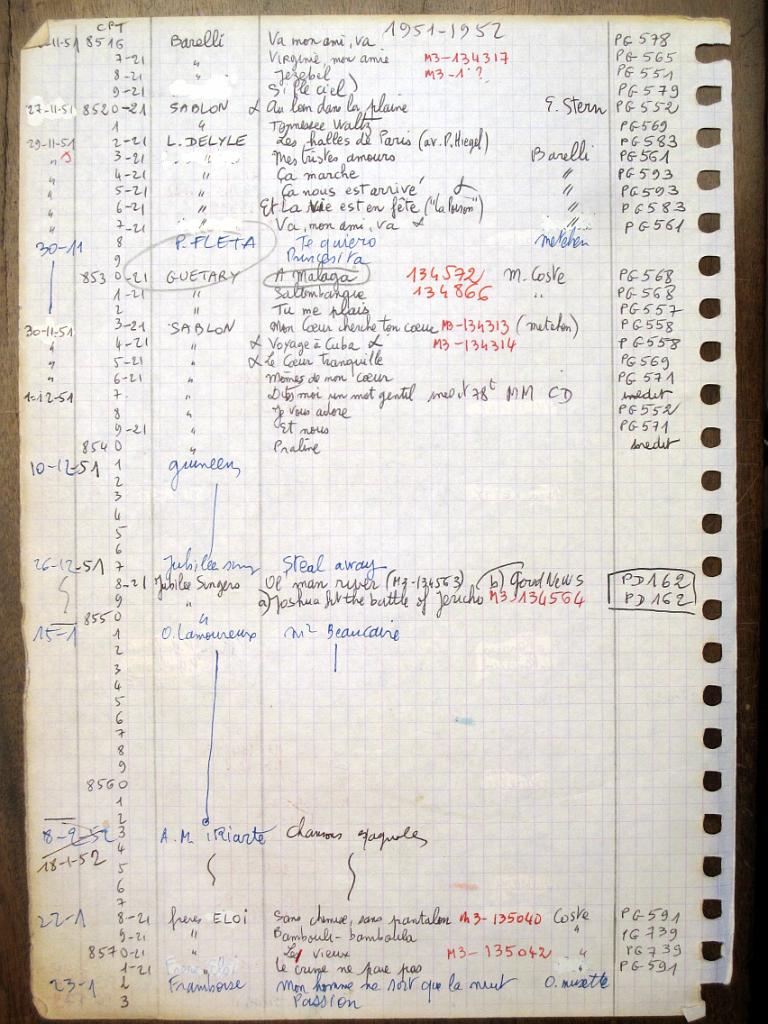 CPT 1951-1952
-11-51 8516 Barelli Va mon ami, va PG 578
7-21 " Virginie, mon amie M3-134317 PG 565
8-21 " Jezebel M3-1 ? PG 551
9-21 S' (le ciel) PG 579
27-11-51 8520-21 SABLON α Au loin dans la plaine E. Stern PG 552
1 " Tennessee Waltz PG569
29-11-51 2-21 L. DELYLE Les halles de Paris (av. P. Hiegel) PG583
" 3-21 " Mes tristes amours Barelli PG561
" 4-21 " Ça marche " PG 593
" 5-21 " Ça nous est arrivé α " PG593
" 6-21 " Et La Vie est en fête ("La Poison") " PG 583
" 7-21 " Va, mon ami, va α " PG 561
30-11 8 P. FLETA Te quiero metehen
9 Princesita
8530-21 GUETARY A Malaga 134572 M. Coste PG 568
1-21 " Saltimbanque 134866 " PG 568
2 " Tu me plais PG 557
30-11-51 3-21 SABLON Mon Cœur cherche ton cœur M3-134313 (metehen) PG558
" 4-21 " α Voyage à Cuba α M3-134314 PG558
" 5-21 " α Le Cœur tranquille PG569
" 6-21 " Mômes de mon cœur PG 571
1-12-51 7. " Dites moi un mot gentil ined 78t MM CD inedit
8 " Je vous adore PG552
9-21 " Et nous PG571
8540 " Praline inedit
10-12-51 1
2
3
4
5
6
26-12-51 7 Jubilee sing Steal away
8-21 Jubilee Singers Ol man river (M3-134563) b) Good News PD162
9 " a) Joshua fit the battle of Jericho M3-134564 PD 162
8550 "
15-1 1 O. Lamoureux Mr Beaucaire
2
3
4
5
6
7
8
9
8560
1
2
8-2-52 3 A. M. iRiarte Chansons Espagnoles
18-1-52 4
5
6
7
22-1 8-21 freres ELOI Sans chemise, sans pantalon M3-135040 Coste PG591
9-21 " Bambouli-bamboula " PG739
8570-21 " Le vieux M3-135042 " PG739
1-21 " Le crime ne paie pas " PG591
23-1 2 Framboise Mon homme ne sort que la nuit O. musette
3 Passion